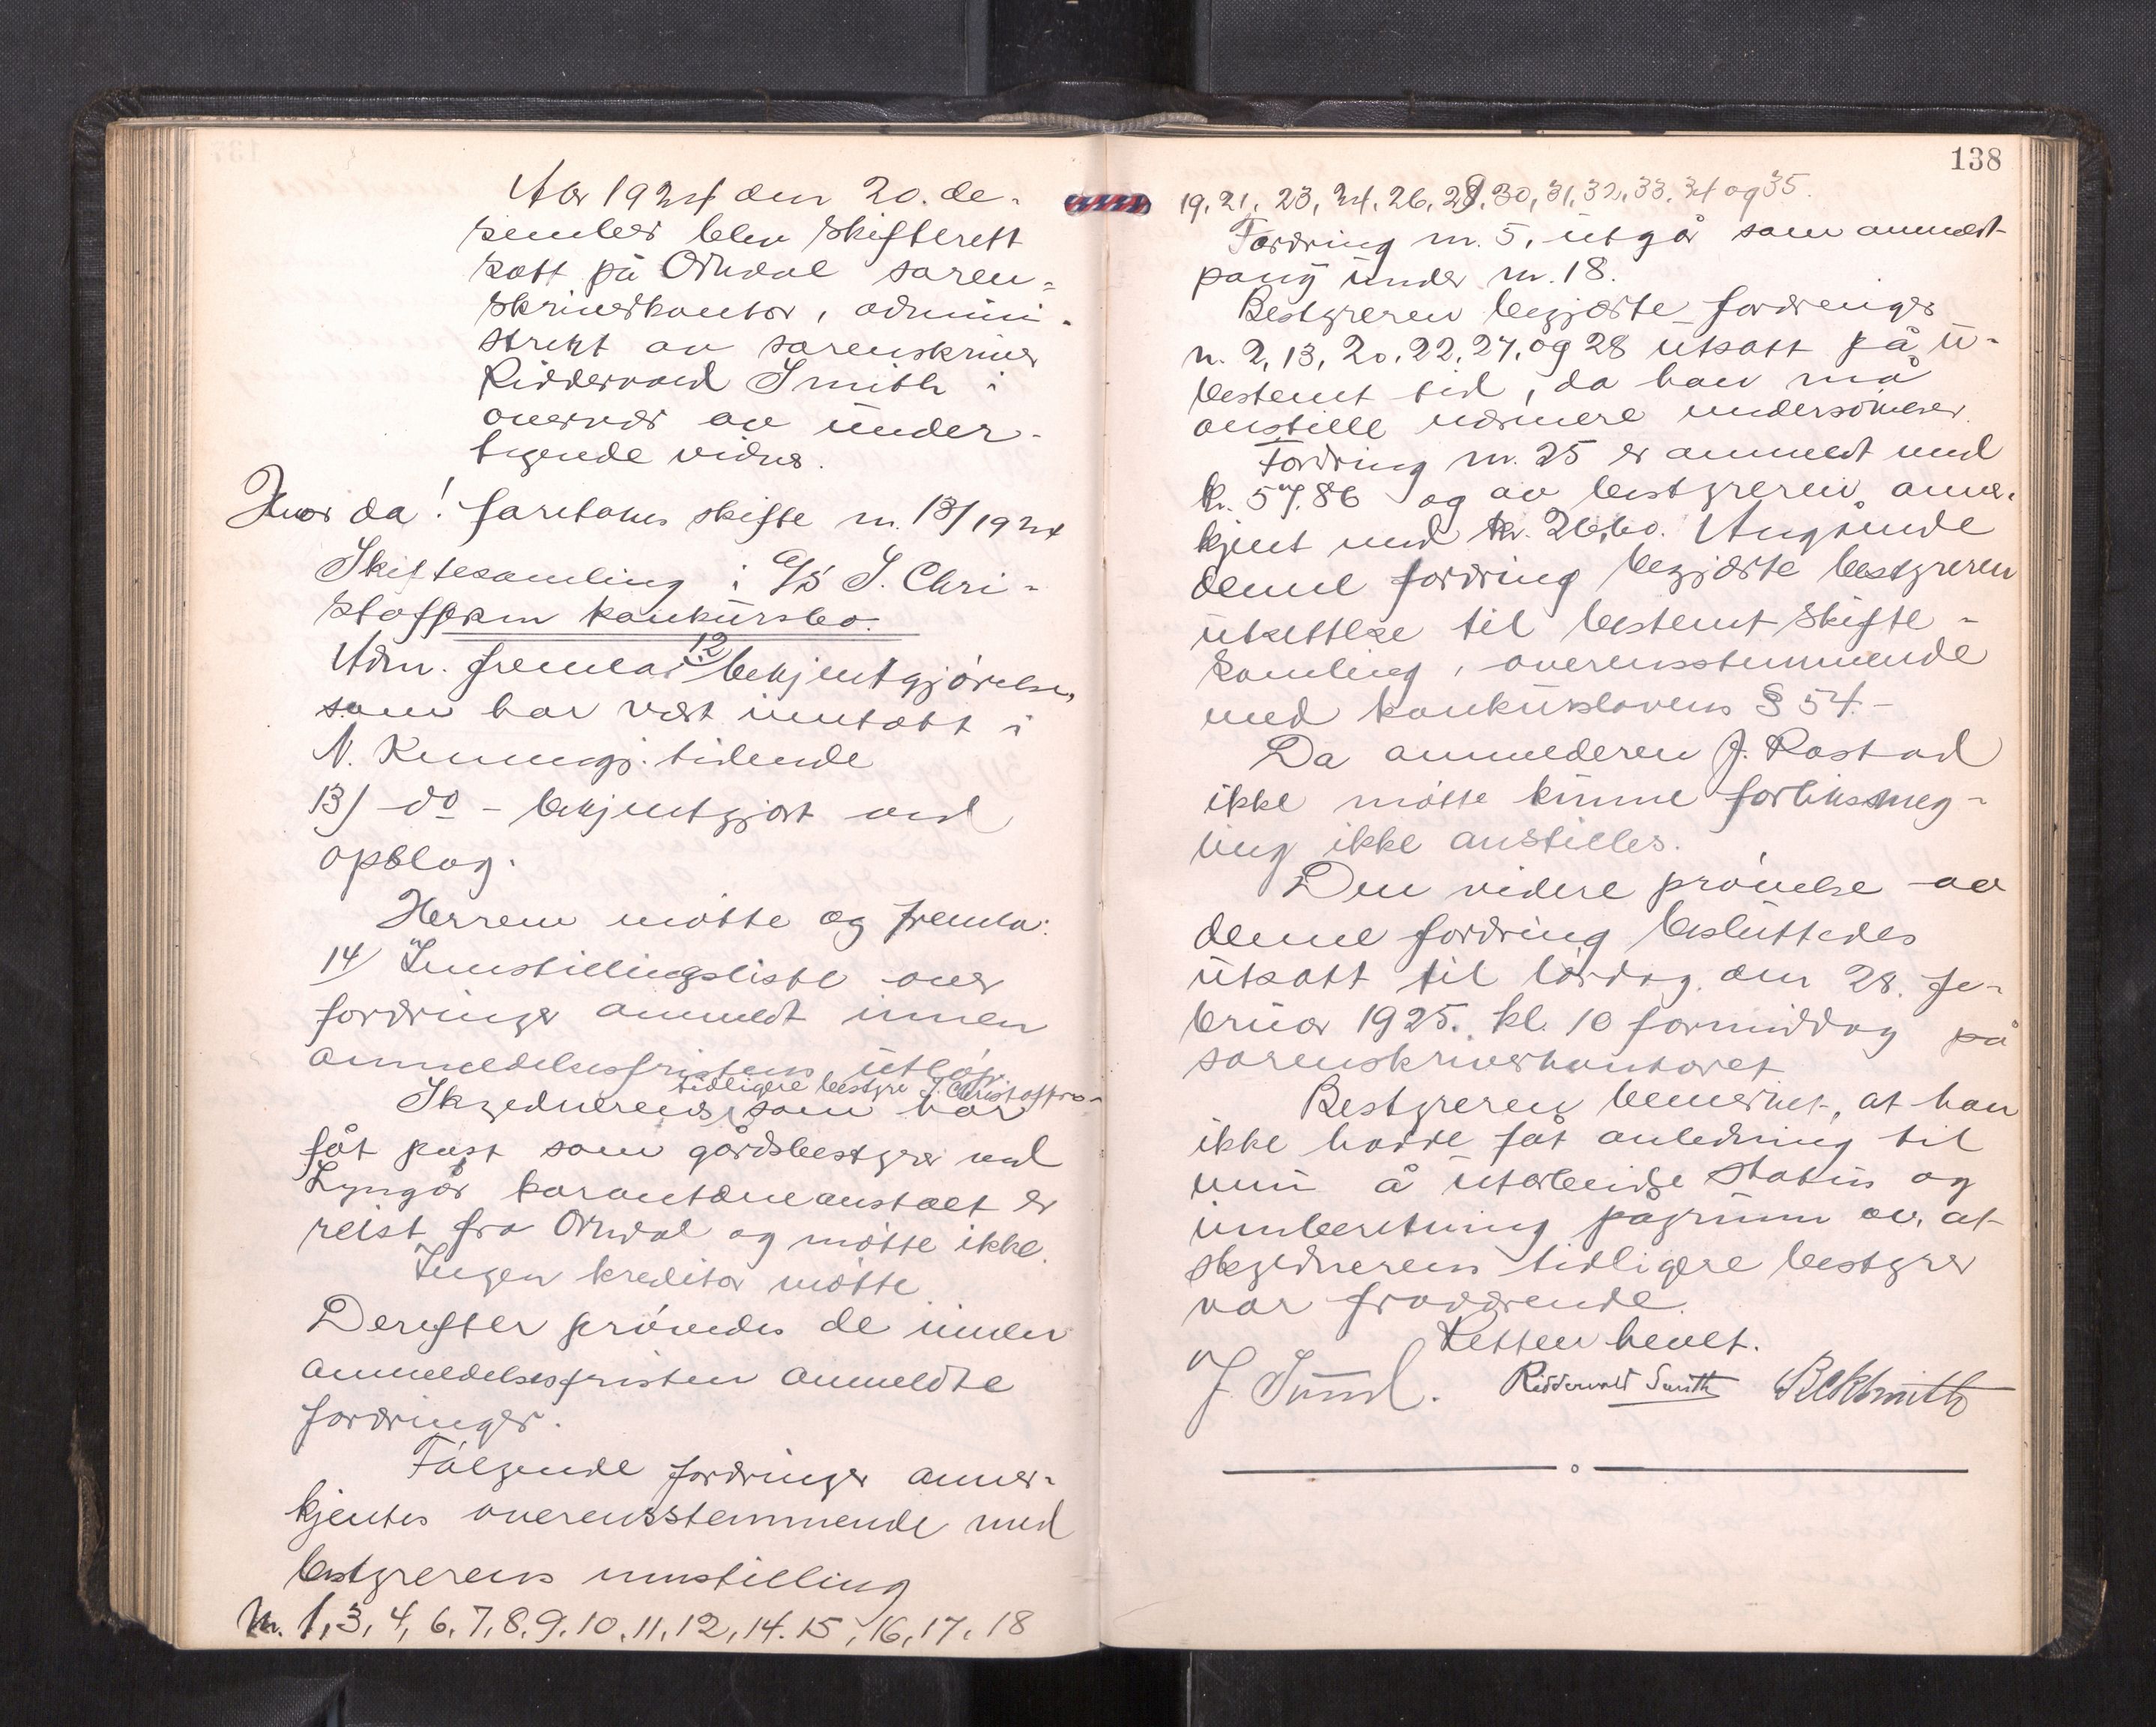 År 1924 den 20. de-
sember blev skifterett
satt på Orkdal soren-
skriverkontor, admini-
strert av sorenskriver
Riddervold Smith i
overvær av under-
tegnede vidner.
Hvor da! foretokes skifte nr. 13/1924
Skiftesamling i A/S J. Chri-
stoffersen konkursbo.
Adm. fremla 12 bekjentgjörelse,
som har vært inntatt i
N. Kunngj. tidende
13/ - do - bekjentgjort ved
opslag.
Herrem møtte og fremla:
14/ Innstillingsliste over
fordringer anmeldt innen
anmeldelsesfristens utlöp.
tidligere bestyrer J. Christoffer-
Skyldnerens som har
fåt post som gårdsbestyrer ved
Lyngör karantæneanstalt er
reist fra Orkdal og mötte ikke.
Ingen kreditor mötte
Derefter prövedes de innen
anmeldelsesfristen anmeldte
fordringer.
Fölgende fordringer aner-
kjentes overensstemmende med
bestyrerens innstilling
Nr. 1, 3, 4, 6, 7, 8, 9, 10, 11, 12, 14, 15, 16, 17, 18
138
19, 21, 23, 24, 26, 29, 30, 31, 32, 33, 34 og 35.
Fordring nr. 5, utgår som anmeldt
påny under nr. 18.
Bestyreren begjærte fordringer
nr. 2, 13, 20, 22, 27, og 28 utsatt på u-
bestemt tid, da han må
anstille nærmere undersökelser.
Fordring nr. 25 er anmeldt med
kr. 57.86 og av bestyreren aner-
kjent med kr. 26,60. Angående
denne fordring begjærte bestyreren
utsettelse til bestemt skifte-
samling, overensstemmende
med konkurslovens § 54. -
Da anmelderen J. Rostad
ikke mötte kunne forliksmeg-
ling ikke anstilles.
Den videre prövelse av
denne fordring besluttedes
utsatt til lördag den 28. fe-
bruar 1925. kl. 10 formiddag på
sorenskriverkontoret
Bestyreren bemerket, at han
ikke hadde fåt anledning til
ennu å utarbeide status og
innberetning pågrunn av, at
skyldnerens tidligere bestyrer
var fraværende.
Retten hevet.
J. Sund. Riddervold Smith